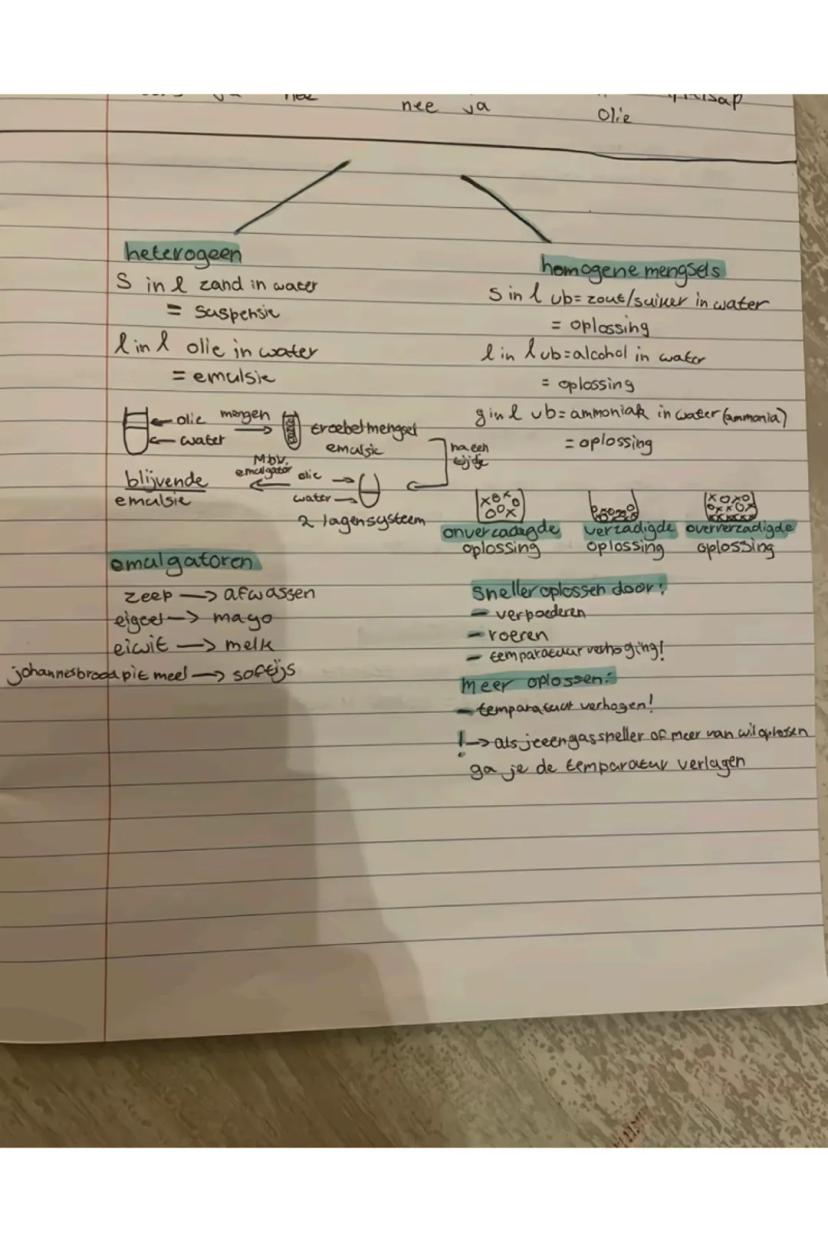 nee ja
Olie
heterogeen
S in l zand in water
= suspensie
l in l olie in water
= emulsie
olie mengen
water
troebel mengsel
emulsie
na een
tijdje
M.b.v.
emulgator olie
water
blijvende
emulsie
2 lagensysteem
emulgatoren
zeep → afwassen
eigeel → mayo
eiwit → melk
johannesbroodpitmeel → softijs
homogene mengsels
S in l vb=zout/suiker in water
= oplossing
l in l vb=alcohol in water
= oplossing
g in l vb=ammoniak in water (ammonia)
= oplossing
onverzadigde verzadigde oververzadigde
oplossing oplossing oplossing
Sneller oplossen door:
- verpoederen
- roeren
- temparatuur verhoging!
Meer oplossen:
- temparatuur verhogen!
! → als je een gas sneller of meer van wil oplossen
ga je de temparatur verlagen